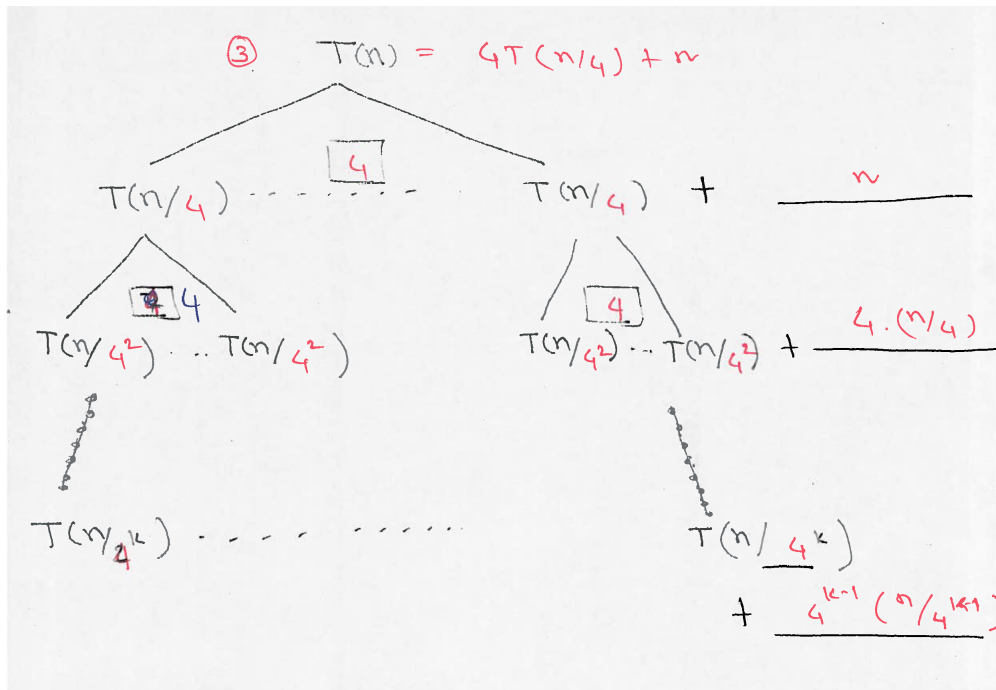 ③ T(n) = 4T(n/4) + n
4
T(n/4) - - - - - - - T(n/4) + n
4 4
T(n/4²) ... T(n/4²) T(n/4²) ... T(n/4²) + 4.(n/4)
T(n/4ᵏ) - - - - ...... T(n/4ᵏ)
+ 4ᵏ⁻¹ (n/4ᵏ⁻¹)